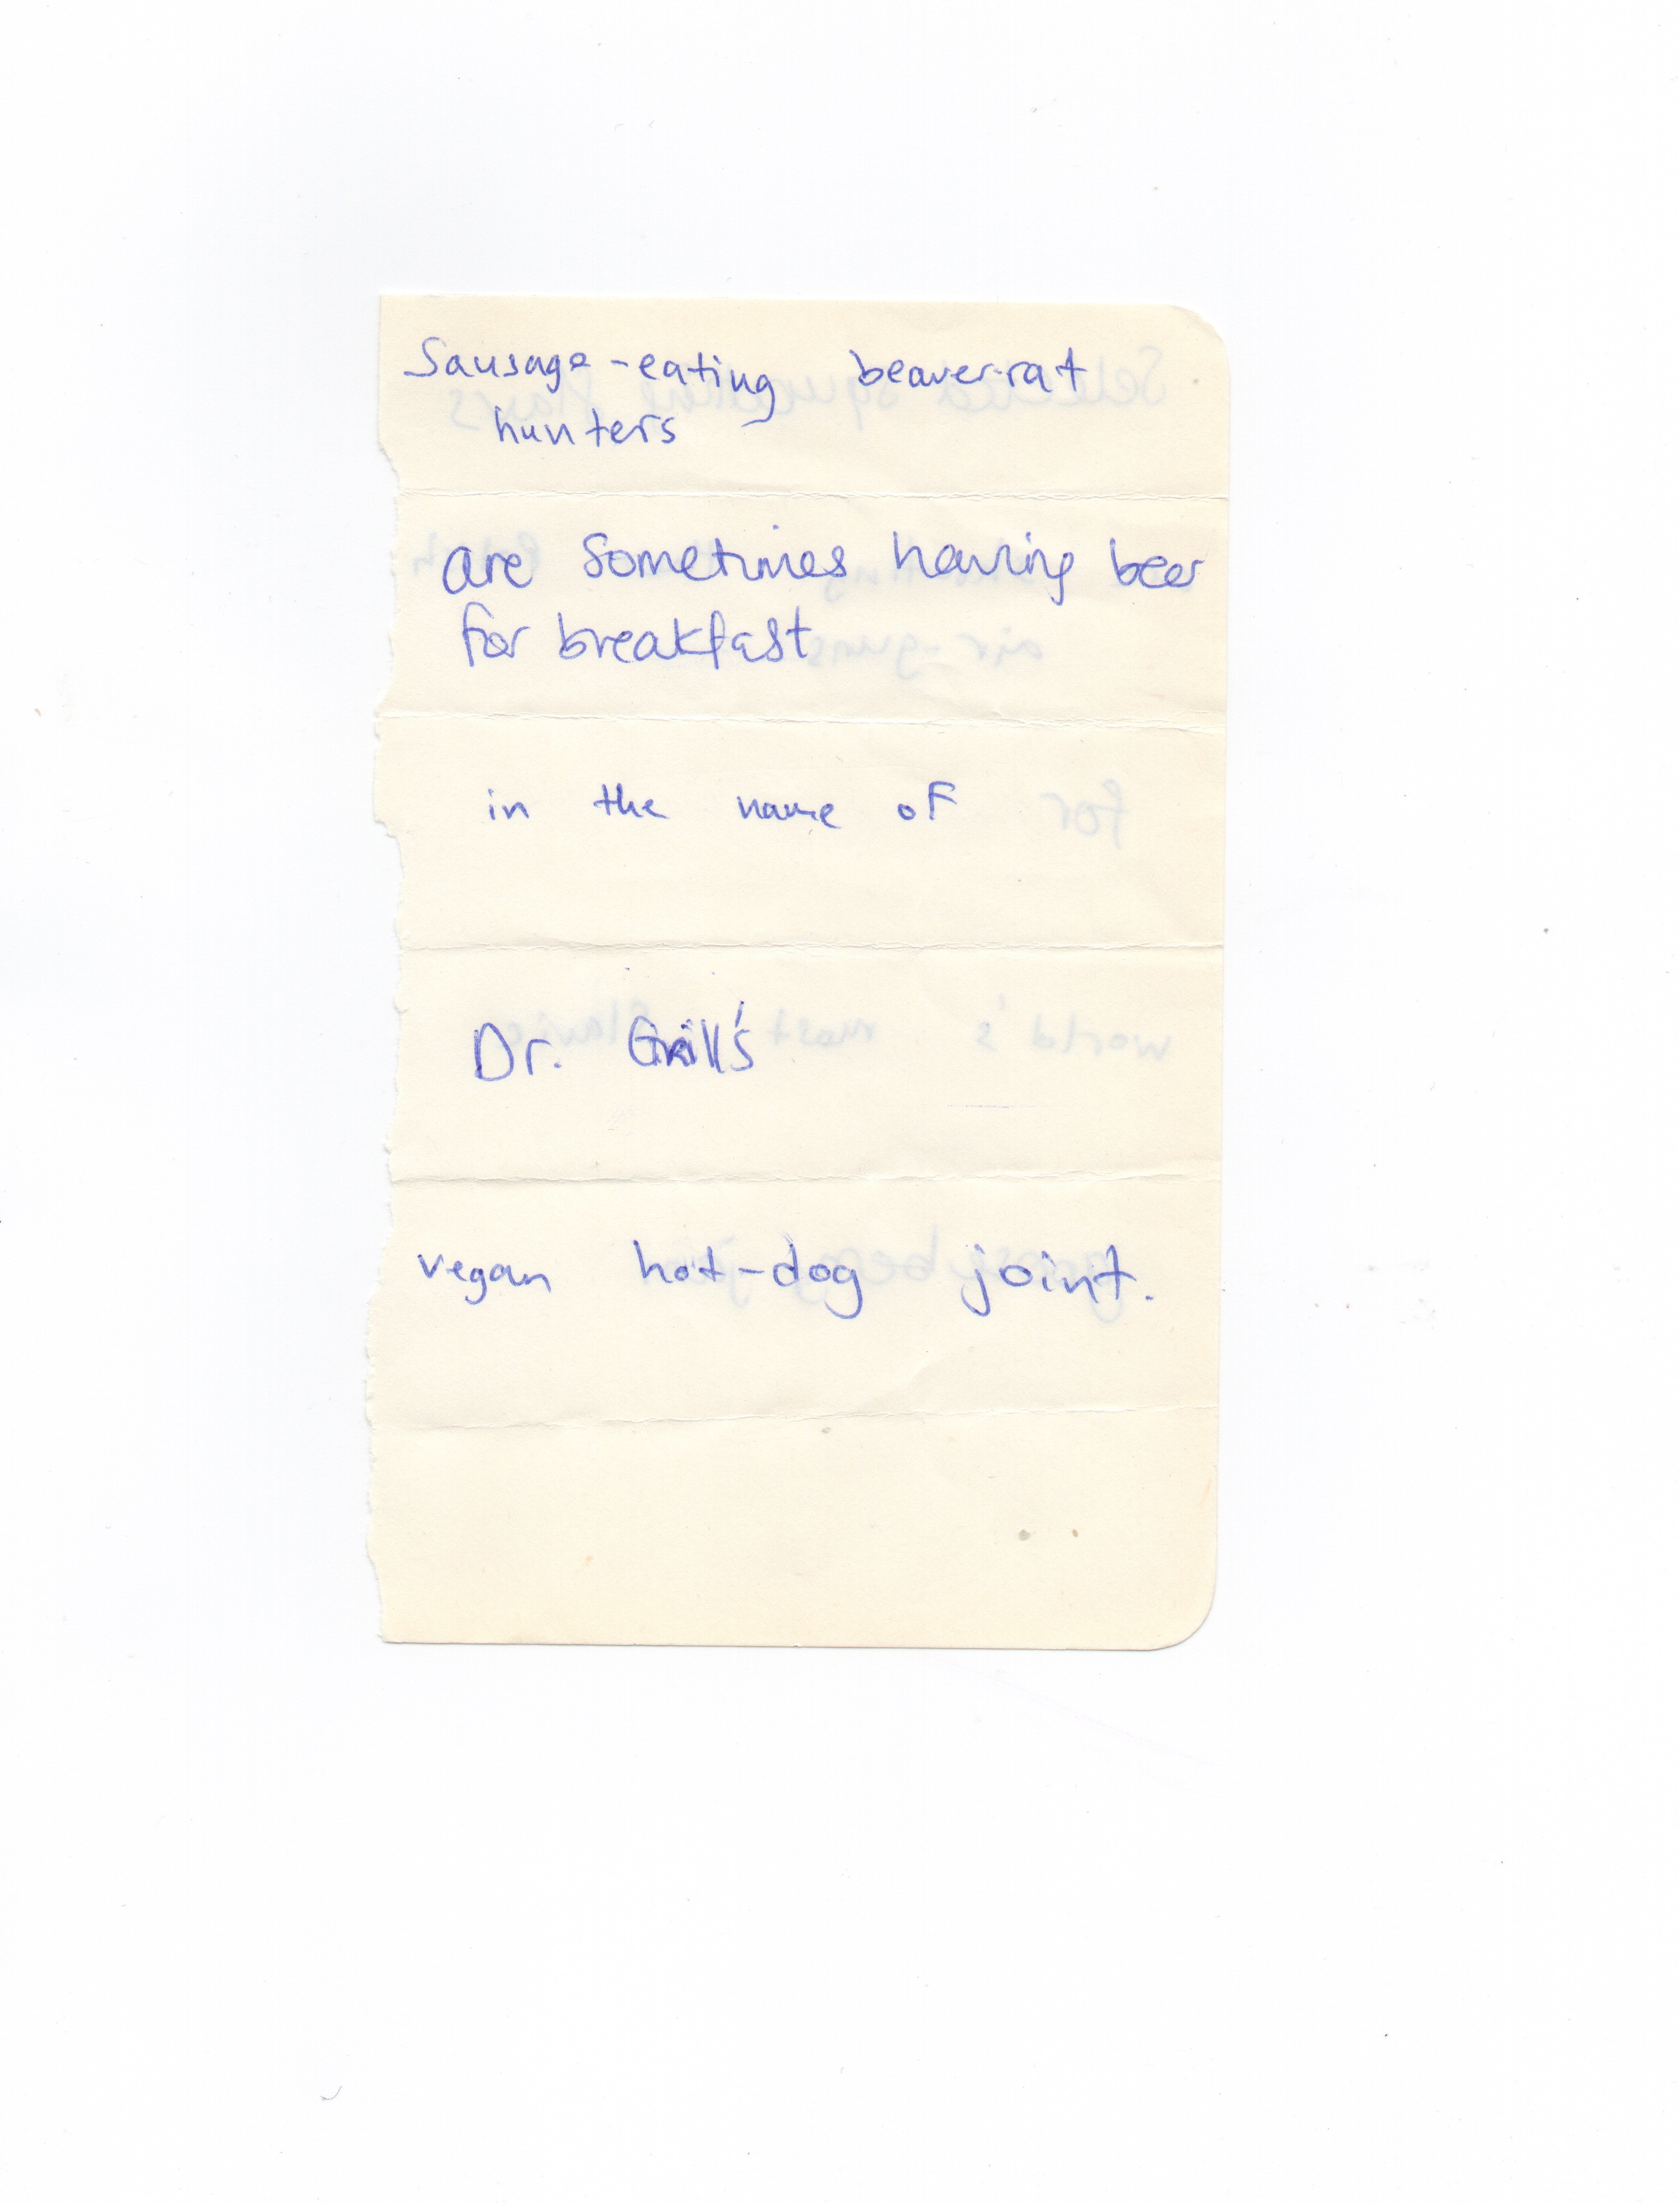 Sausage-eating beaver-rat
hunters
are sometimes having beer
for breakfast
in the name of
Dr. Grill's
vegan hot-dog joint.